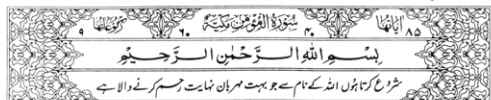 اٰیاتُہا ۸۵ سُوْرَۃُ الْمُؤْمِنِ مَکِّیَّۃٌ ۴۰ ۶۰ رُکُوْعَاتُہَا ۹
بِسْمِ اللهِ الرَّحْمٰنِ الرَّحِيْمِ
شروع کرتا ہوں اللہ کے نام سے جو بہت مہربان نہایت رحم کرنے والا ہے